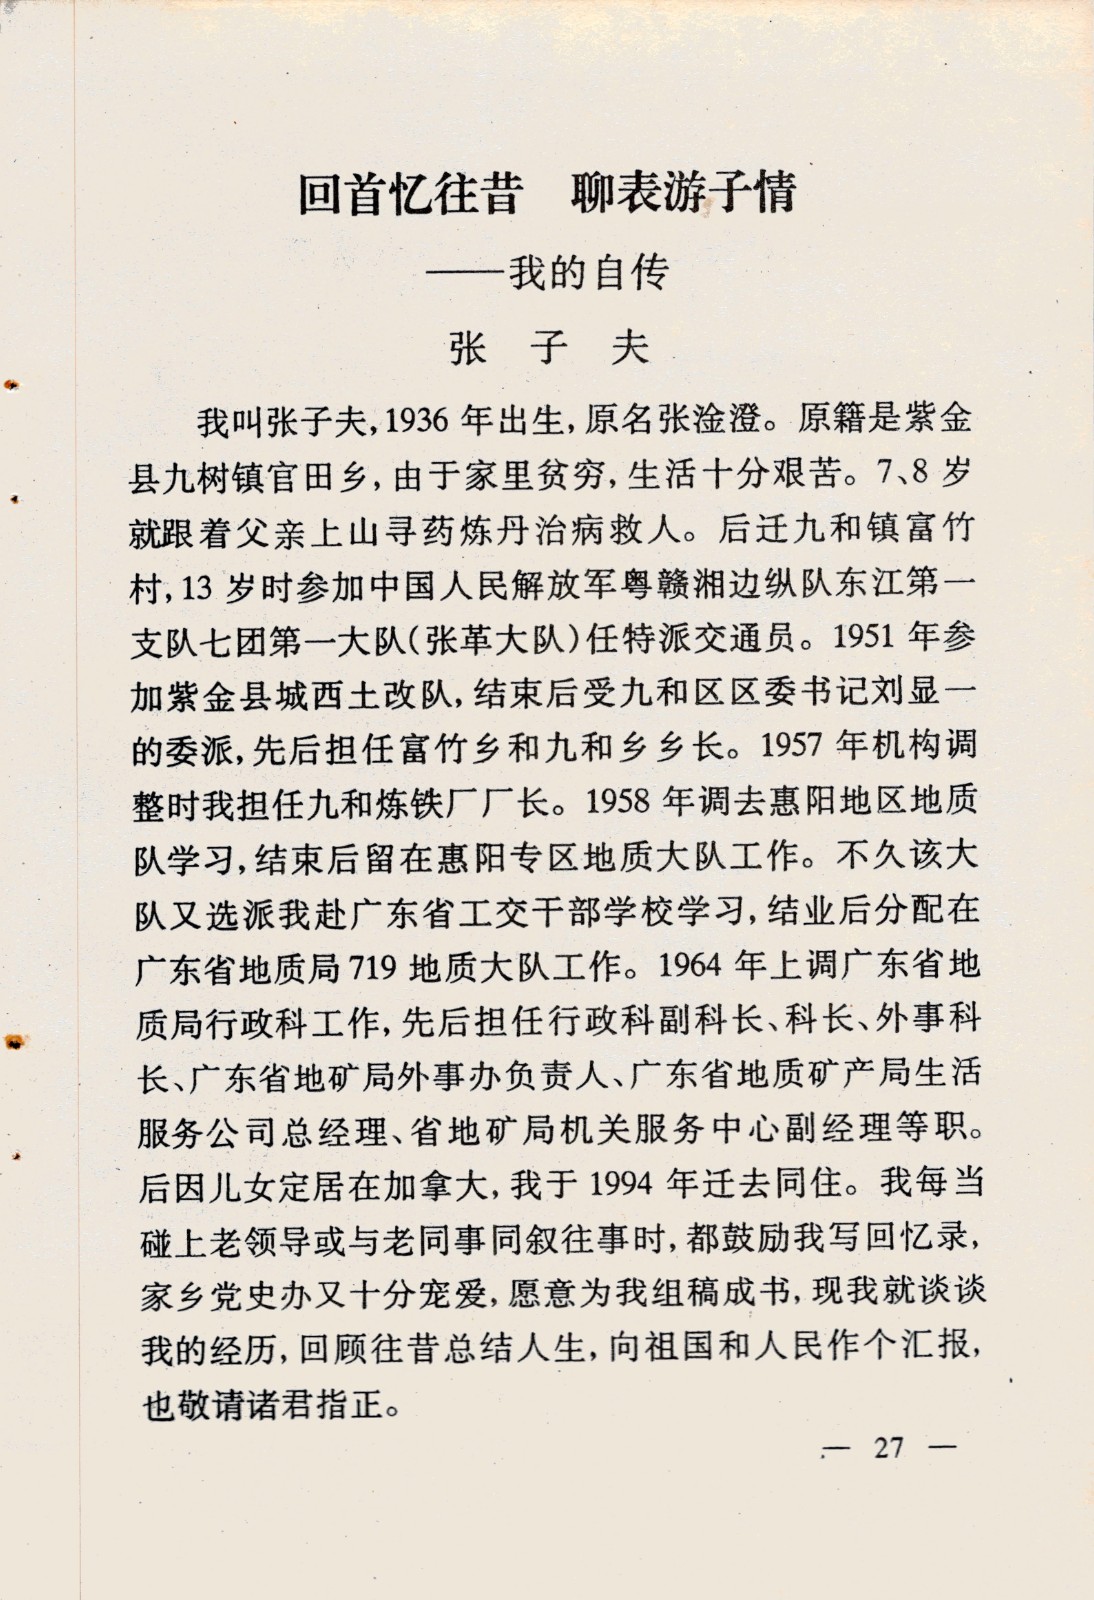 回首忆往昔　聊表游子情
——我的自传
张　子　夫
我叫张子夫，1936 年出生，原名张淦澄。原籍是紫金
县九树镇官田乡，由于家里贫穷，生活十分艰苦。7、8 岁
就跟着父亲上山寻药炼丹治病救人。后迁九和镇富竹
村，13 岁时参加中国人民解放军粤赣湘边纵队东江第一
支队七团第一大队（张革大队）任特派交通员。1951 年参
加紫金县城西土改队，结束后受九和区区委书记刘显一
的委派，先后担任富竹乡和九和乡乡长。1957 年机构调
整时我担任九和炼铁厂厂长。1958 年调去惠阳地区地质
队学习，结束后留在惠阳专区地质大队工作。不久该大
队又选派我赴广东省工交干部学校学习，结业后分配在
广东省地质局 719 地质大队工作。1964 年上调广东省地
质局行政科工作，先后担任行政科副科长、科长、外事科
长、广东省地矿局外事办负责人、广东省地质矿产局生活
服务公司总经理、省地矿局机关服务中心副经理等职。
后因儿女定居在加拿大，我于 1994 年迁去同住。我每当
碰上老领导或与老同事同叙往事时，都鼓励我写回忆录，
家乡党史办又十分宠爱，愿意为我组稿成书，现我就谈谈
我的经历，回顾往昔总结人生，向祖国和人民作个汇报，
也敬请诸君指正。
— 27 —